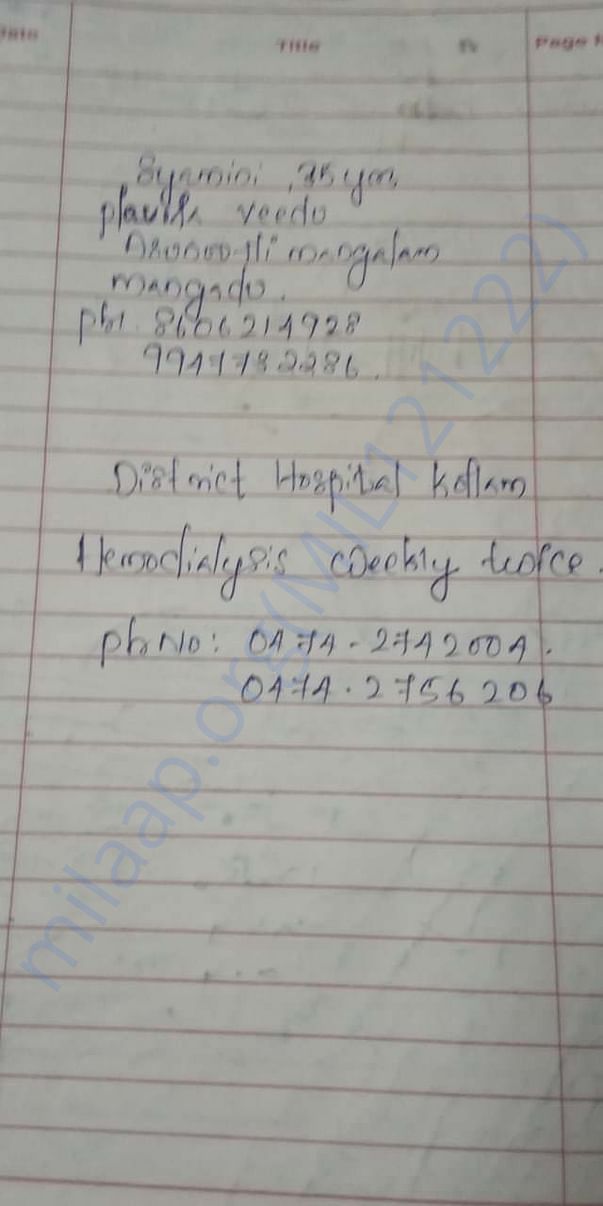 Date Title Page
Syamini
veedu
mangalam
mangadu.
8606214928
9947782286.
District Hospital Kollam
Hemodialysis weekly twice.
ph No: 0474-2742004.
0474.2756206
milaap.org(MIL121222)